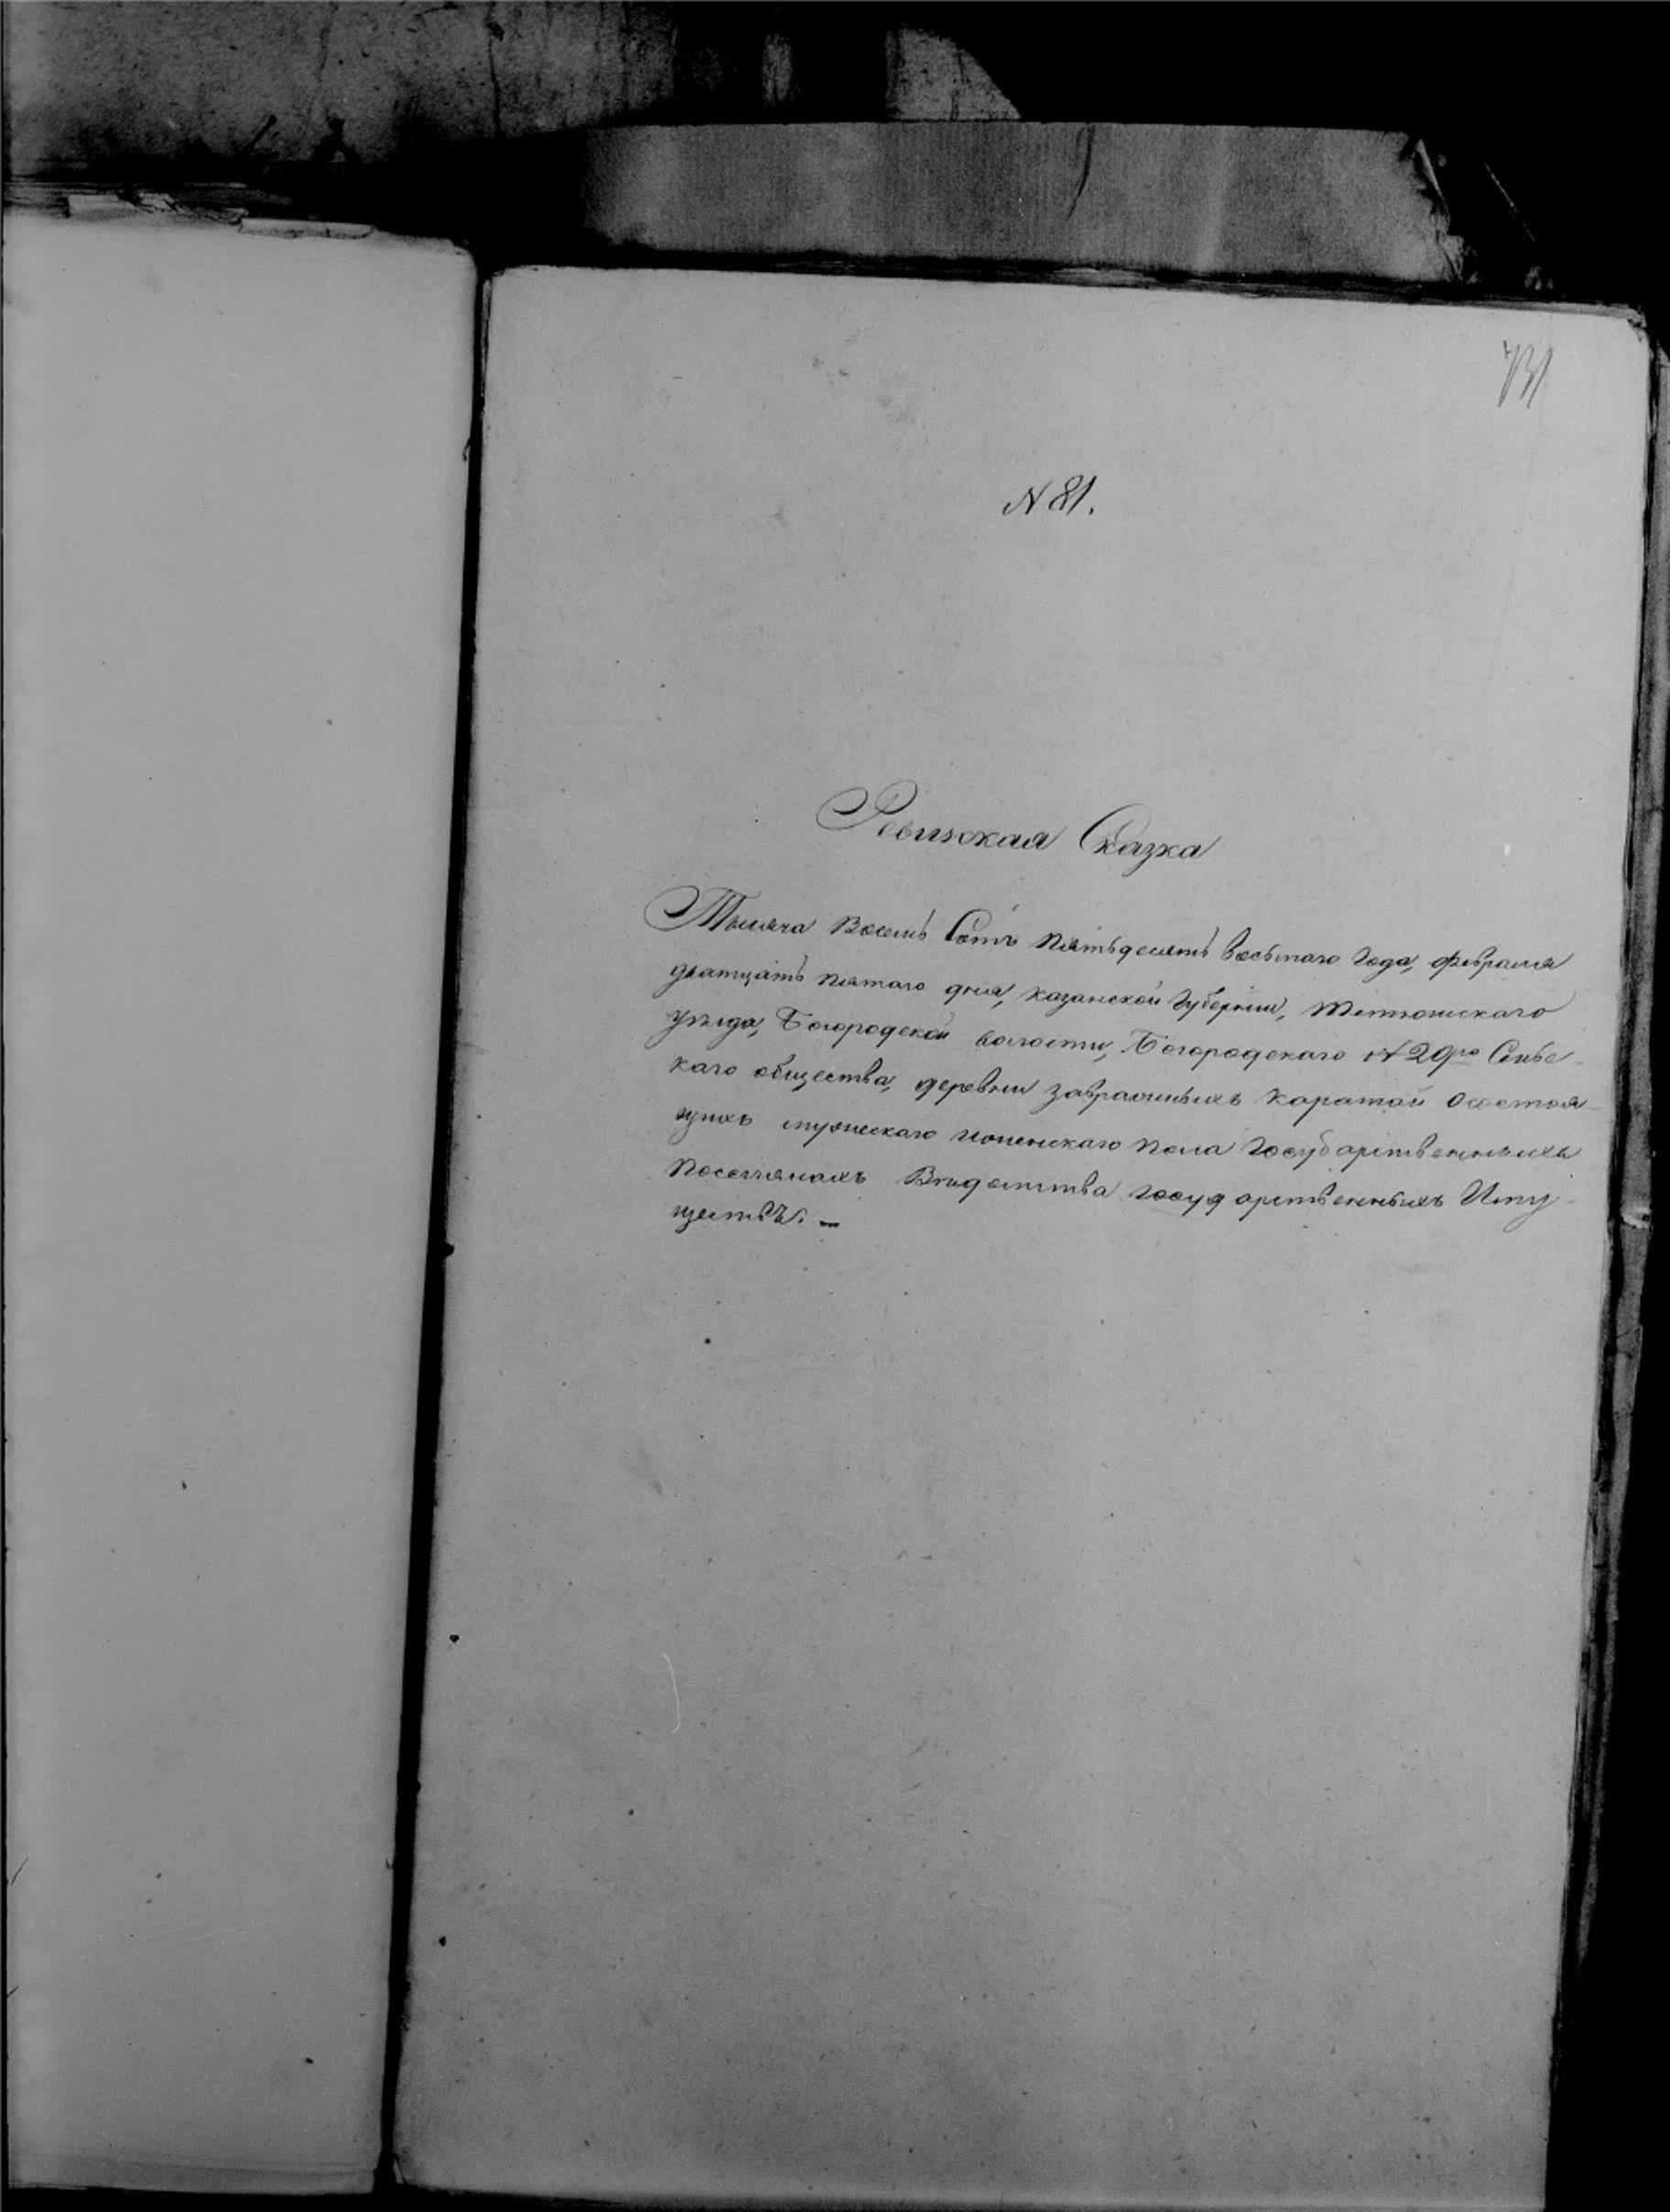 731
N 81.
Ревизская Сказка
Тысяча Восемь Сотъ пятьдесятъ восьмаго года, февраля
дватцать пятаго дня, казанской Губернии, тетюшскаго
уѣзда, Богородской волости, Богородскаго N 29го Сельс-
каго общества, деревни завражныхъ каратай о состоя-
щихъ мужескаго иженскаго пола государственныхъ
поселянахъ Вѣдомства государственныхъ Иму-
ществъ. —